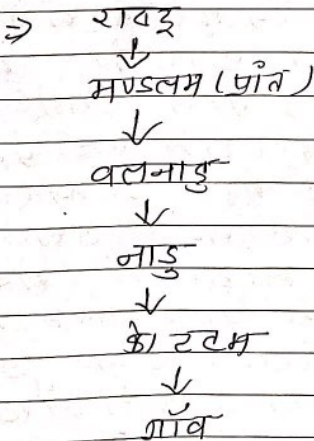 ⇒ राष्ट्र
↓
मण्डलम (प्रांत)
↓
वलनाडु
↓
नाडु
↓
कोट्टम
↓
गाँव